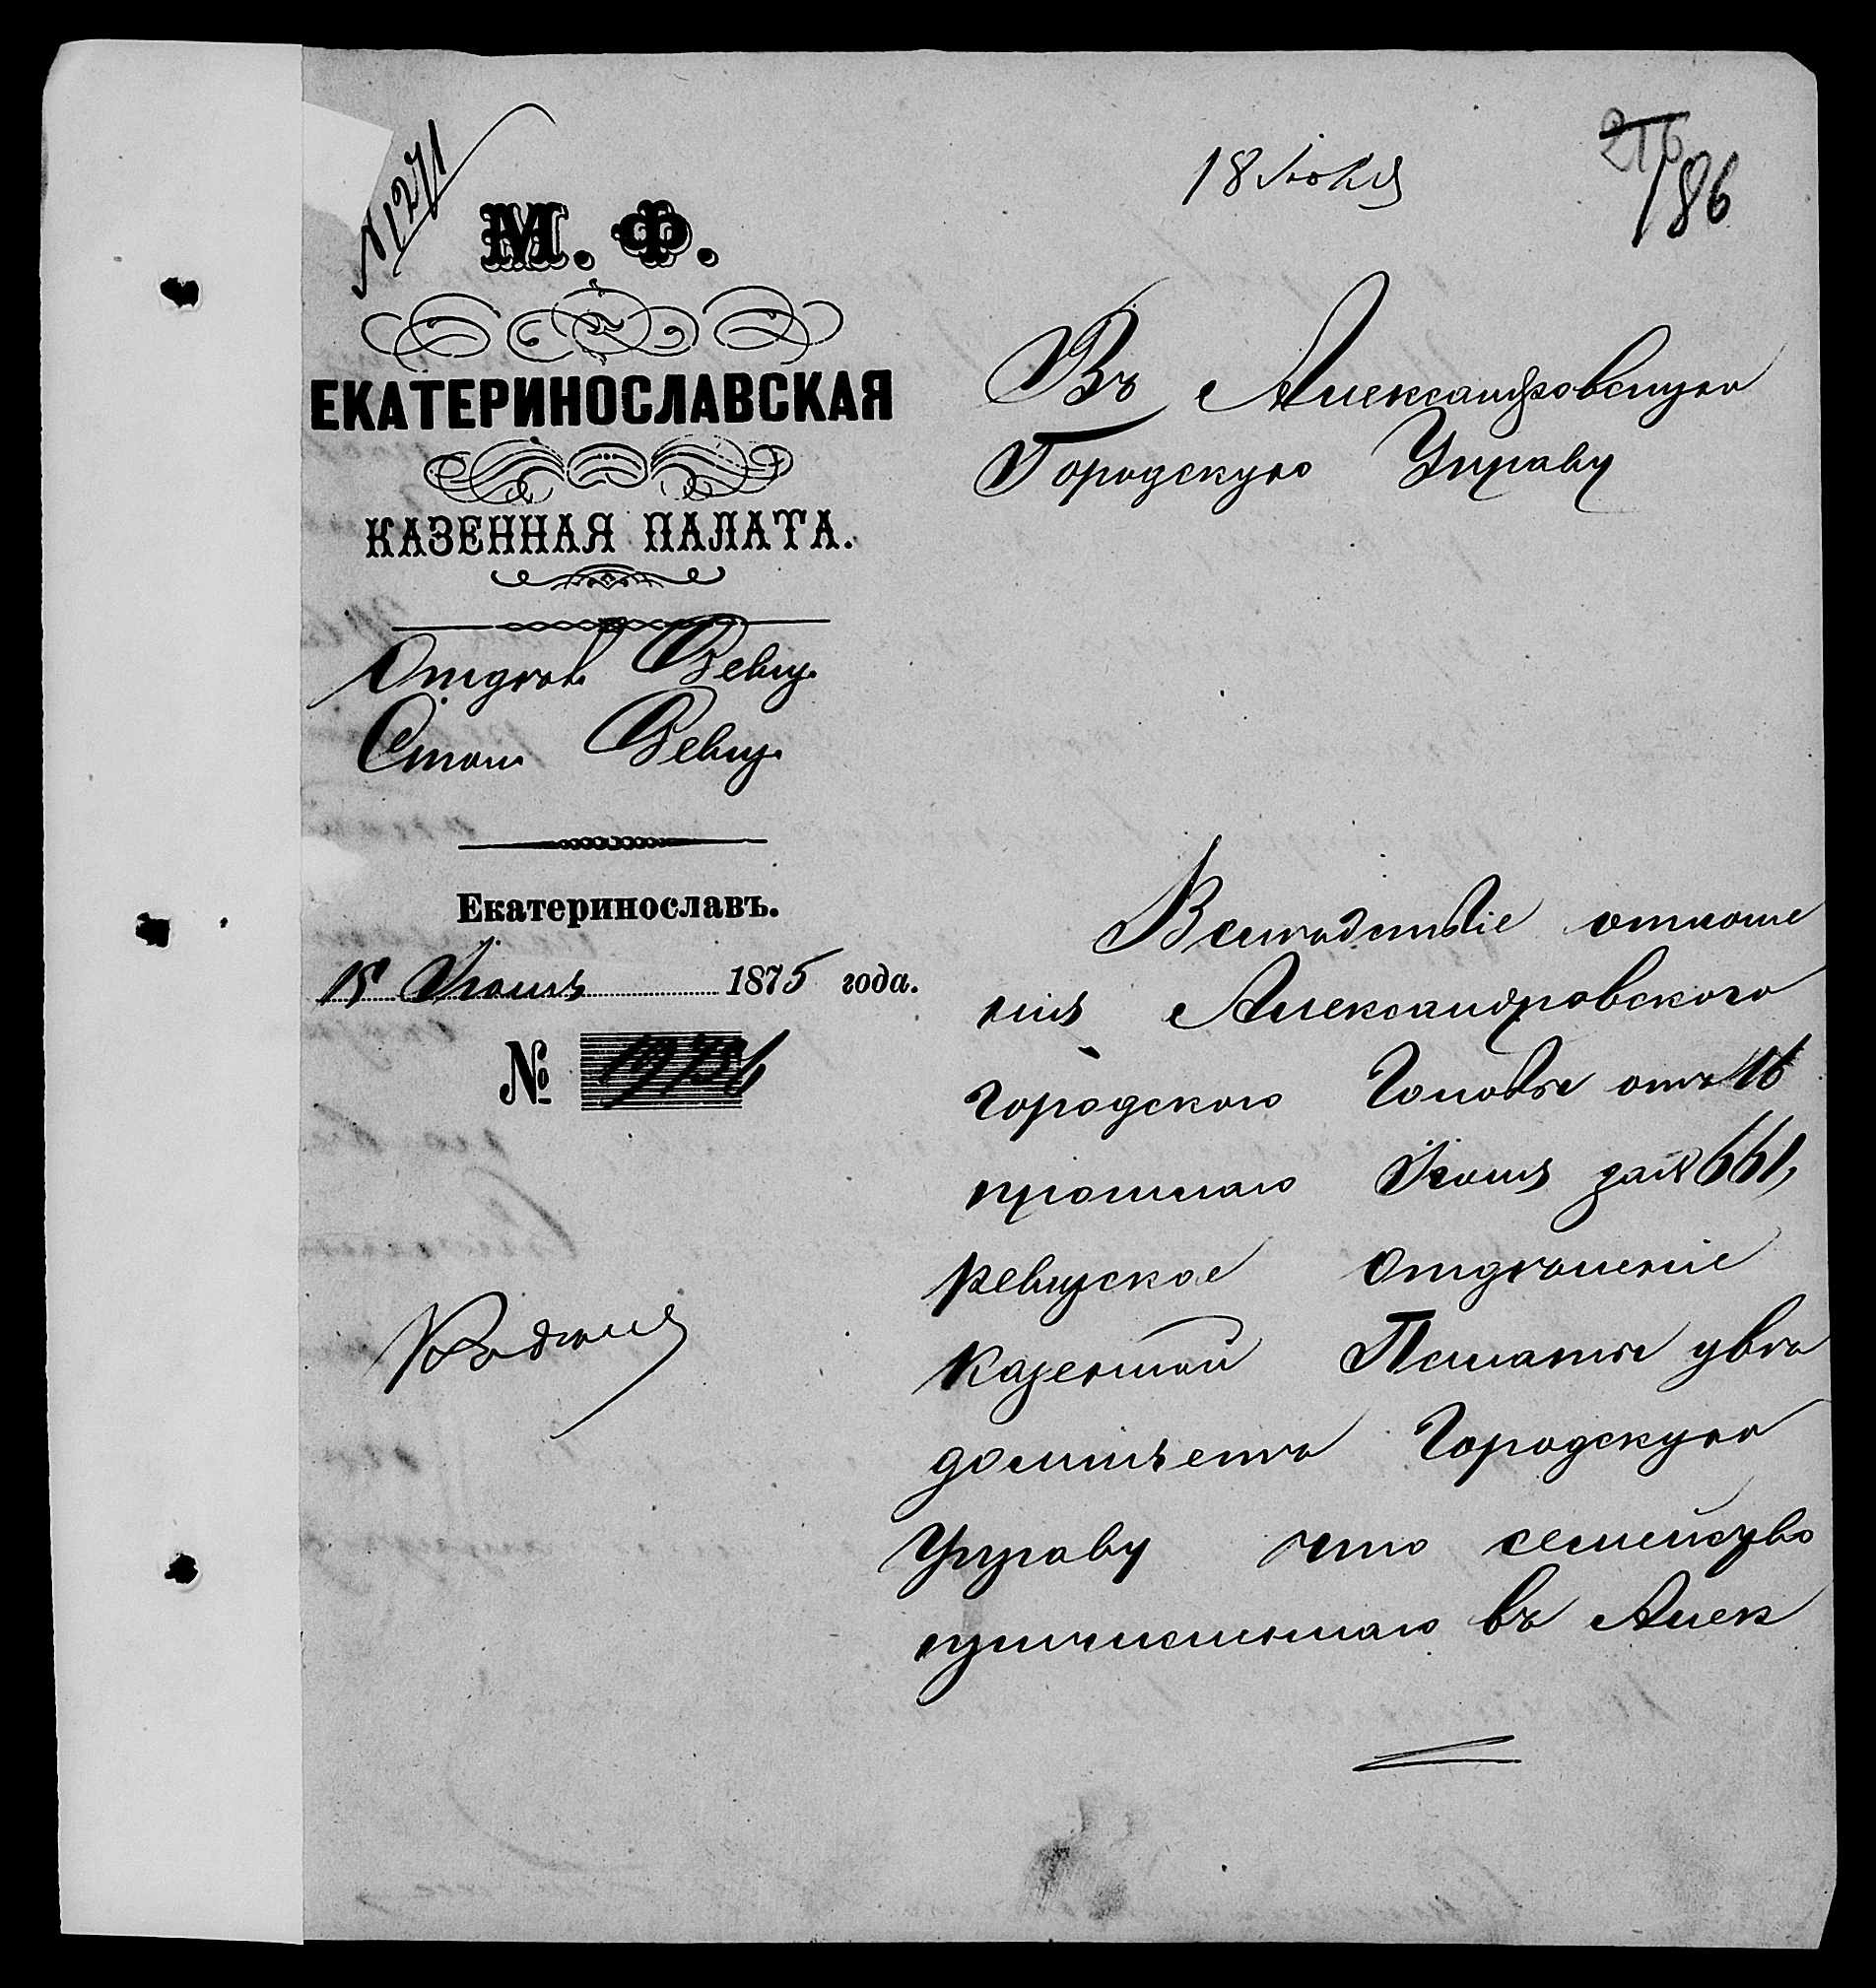 № 1271
18 Іюля
216
186
М. Ф.
ЕКАТЕРИНОСЛАВСКАЯ
КАЗЕННАЯ ПАЛАТА.
Отдѣл. Ревиз.
Стол. Ревиз.
Екатеринославъ.
15 Іюля 1875 года.
№
Въ Александровскую
Городскую Управу
Вслѣдствіе отноше
нія Александровского
городского Головы отъ 16
прошлаго Іюня за № 661,
ревизское отдѣленіе
Казенной Палаты увѣ
домляетъ Городскую
Управу что семейство
причисленнаго въ Алек